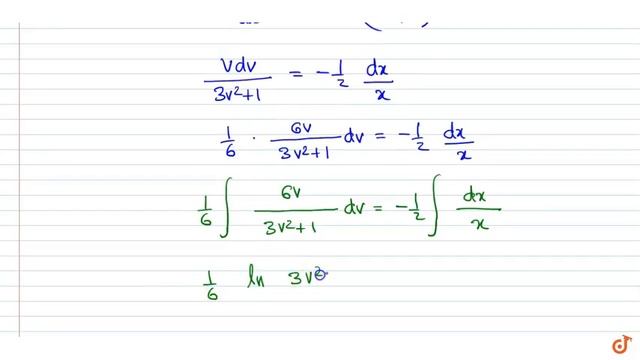 Vdv/3v²+1 = -1/2 dx/x
1/6 · 6v/3v²+1 dv = -1/2 dx/x
1/6 ∫ 6v/3v²+1 dv = -1/2 ∫ dx/x
1/6 ln 3v²